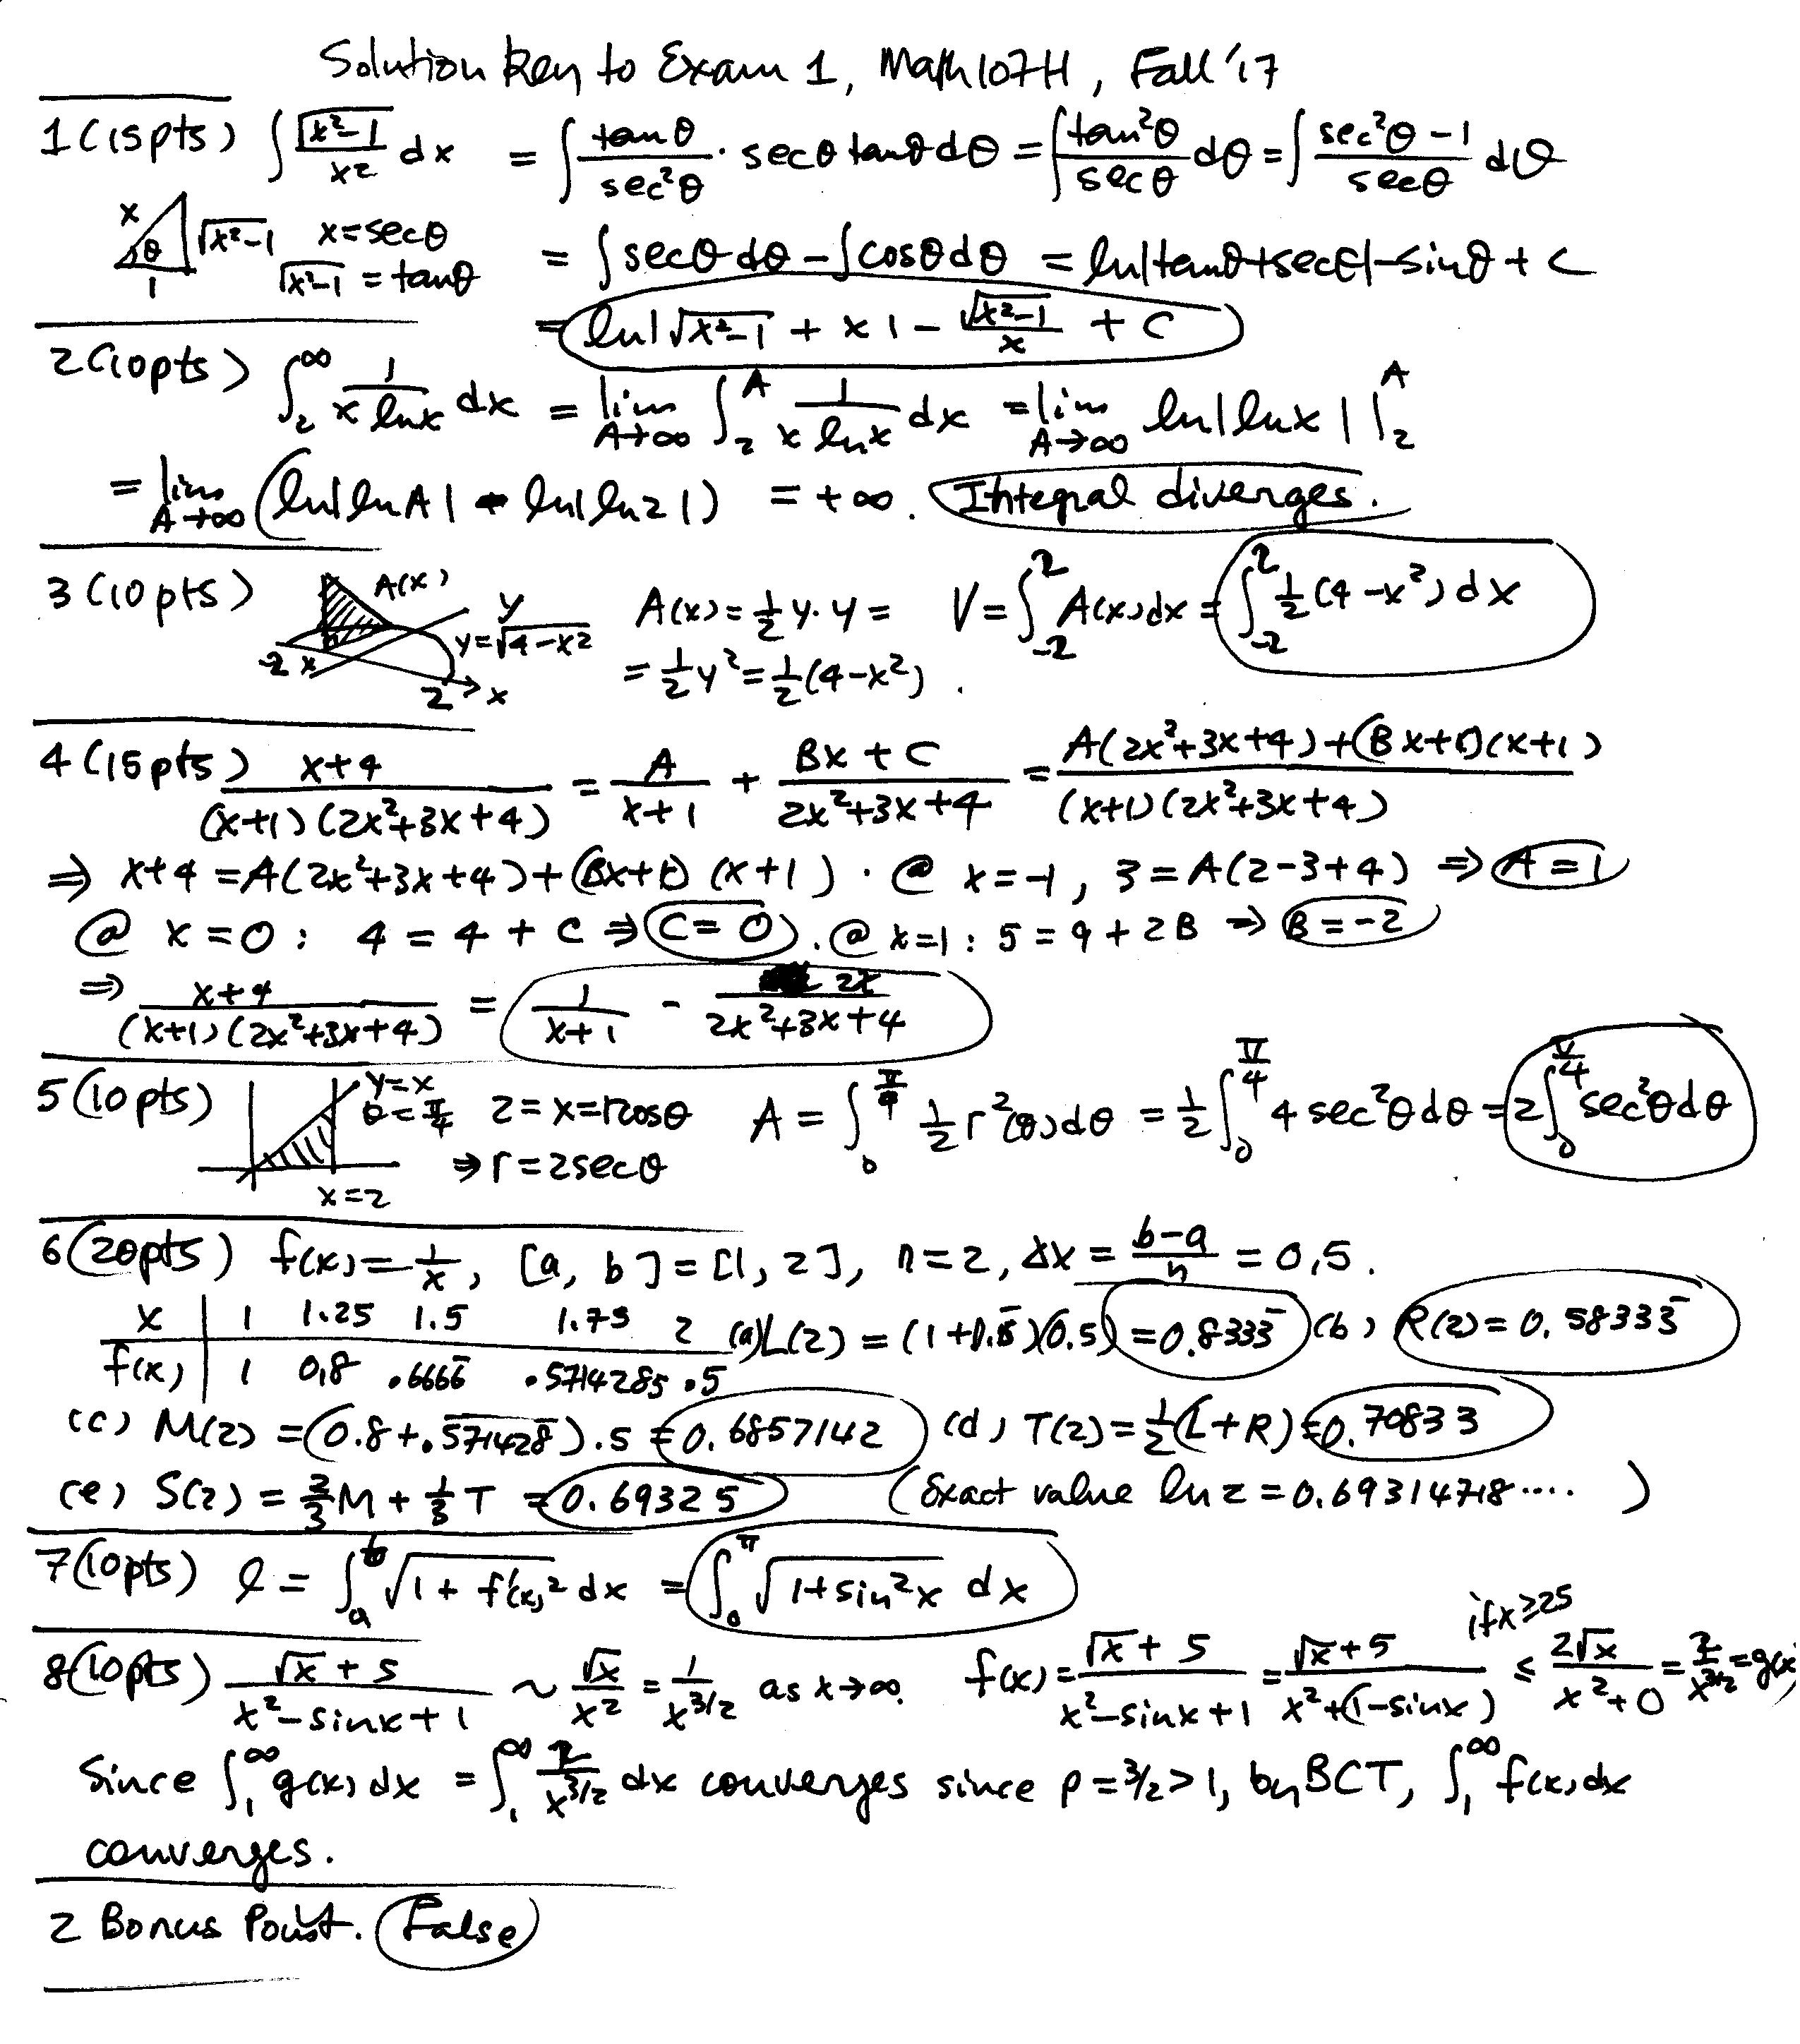 Solution Key to Exam 1, Math107H, Fall '17
1 (15pts) ∫ √(x²-1)/x² dx = ∫ tanθ/sec²θ · secθ tanθ dθ = ∫ tan²θ/secθ dθ = ∫ (sec²θ-1)/secθ dθ
x θ 1 √(x²-1) x=secθ √(x²-1) = tanθ = ∫ secθ dθ - ∫ cosθ dθ = ln|tanθ+secθ|-sinθ + C
= ln|√(x²-1) + x| - √(x²-1)/x + C
2 (10pts) ∫₂^∞ 1/(x lnx) dx = lim A→∞ ∫₂^A 1/(x lnx) dx = lim A→∞ ln|lnx| |₂^A
= lim A→∞ (ln|lnA| - ln|ln2|) = +∞. Integral diverges.
3 (10pts) A(x) y y=√(4-x²) -2 x 2 x A(x)=½y·y = V=∫₋₂² A(x)dx = ∫₋₂² ½(4-x²)dx
= ½y²=½(4-x²).
4 (15pts) (x+4)/((x+1)(2x²+3x+4)) = A/(x+1) + (Bx+C)/(2x²+3x+4) = (A(2x²+3x+4)+(Bx+C)(x+1))/((x+1)(2x²+3x+4))
⇒ x+4 =A(2x²+3x+4)+(Bx+C)(x+1). @ x=-1, 3=A(2-3+4) ⇒ A=1
@ x=0: 4=4+C ⇒ C=0. @ x=1: 5=9+2B ⇒ B=-2
⇒ (x+4)/((x+1)(2x²+3x+4)) = 1/(x+1) - 2x/(2x²+3x+4)
5 (10pts) y=x θ=π/4 x=2 2=x=rcosθ ⇒ r=2secθ A = ∫₀^(π/4) ½r²(θ)dθ = ½∫₀^(π/4) 4sec²θdθ = 2∫₀^(π/4) sec²θdθ
6 (20pts) f(x)=1/x, [a, b]=[1, 2], n=2, Δx = (b-a)/n = 0.5.
x 1 1.25 1.5 1.75 2 (a) L(2) = (1+0.6̅)(0.5) = 0.8333̅ (b) R(2)= 0.58333̅
f(x) 1 0.8 .6666̅ .5714285 .5
(c) M(2) = (0.8+.571428̅).5 = 0.6857142 (d) T(2)=½(L+R)=0.70833
(e) S(2) = ⅔M + ⅓T = 0.69325 (Exact value ln2=0.69314718....)
7 (10pts) l = ∫ₐᵇ √(1+f'(x)²) dx = ∫₀^π √(1+sin²x) dx
8 (10pts) (√x+5)/(x²-sinx+1) ~ √x/x² = 1/x^(3/2) as x→∞. f(x)=(√x+5)/(x²-sinx+1) = (√x+5)/(x²+(1-sinx)) if x≥25 ≤ 2√x/(x²+0) = 2/x^(3/2) = g(x)
Since ∫₁^∞ g(x)dx = ∫₁^∞ 2/x^(3/2) dx converges since p=3/2>1, by BCT, ∫₁^∞ f(x)dx
converges.
2 Bonus Point. False